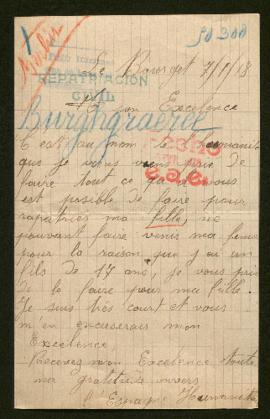 50300
REPATRIACION
CIVIL
Le Bourget 7/1/18
Son Excelence
Burghgraeve
C est au nom de l humanité
que je vous vien prie de
faire tout ce qu vous
est posible de faire pour
rapatriés ma fille, ne
pouvant faire venir ma femme
pour la raison que j ai un
fils de 17 ans, je vous prie
de le faire pour ma fille.
Je suis très court et vous
m en excuserais mon
Excelence
Recevez mon Excelence toute
ma gratitude envers
l'Espagne Humanité